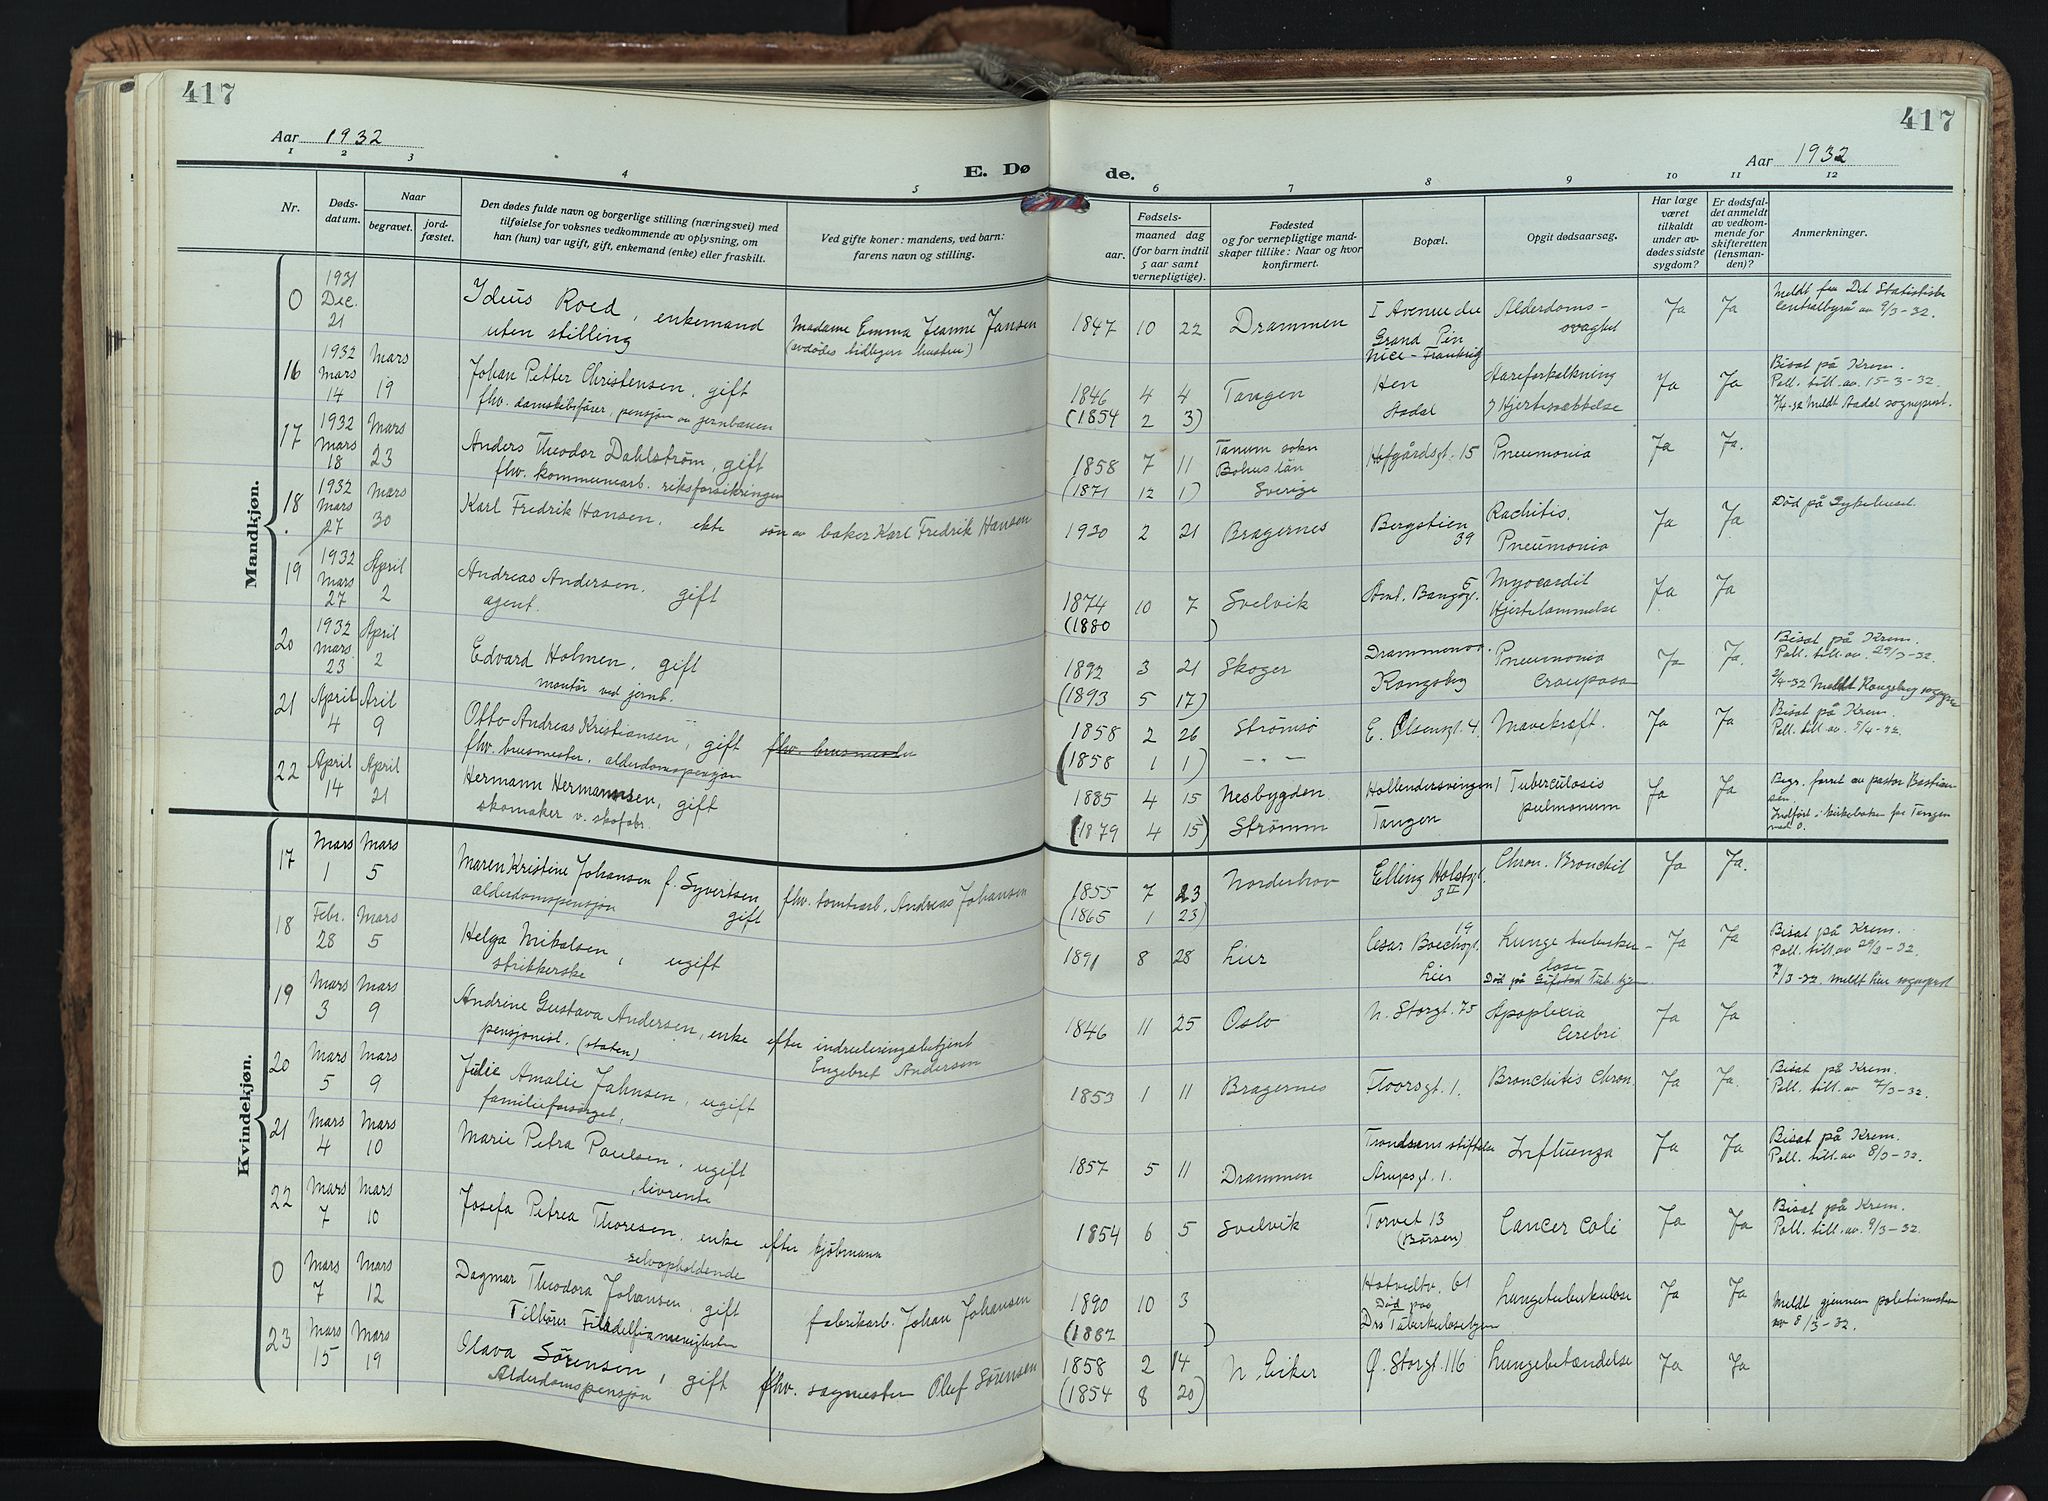 417
417
Aar 1932
Aar 1932
E. Dø
de.
1 2 3 4 5 6 7 8 9 10 11 12
Nr.
Døds-
datum.
Naar
begravet.
jord-
fæstet.
Den dødes fulde navn og borgerlige stilling (næringsvei) med
tilføielse for voksnes vedkommende av oplysning, om
han (hun) var ugift, gift, enkemand (enke) eller fraskilt.
Ved gifte koner: mandens, ved barn:
farens navn og stilling.
Fødsels-
aar. maaned dag
(for barn indtil
5 aar samt
vernepligtige).
Fødested
og for vernepligtige mand-
skaper tillike: Naar og hvor
konfirmert.
Bopæl.
Opgit dødsaarsag.
Har læge
været
tilkaldt
under av-
dødes sidste
sygdom?
Er dødsfal-
det anmeldt
av vedkom-
mende for
skifteretten
(lensman-
den)?
Anmerkninger.
Mandkjøn.
0 1931 Dec. 21
Ideus Roed, enkemand
uten stilling
Madame Emma Jeanne Jansen
(avdødes tidligere hustru)
1847 10 22 Drammen
I Avenue du
Grand Pin
Nice - Frankrig
Alderdoms-
svaghet
Ja Ja
Meldt fra Det Statistiske
Centralbyrå av 9/3-32.
16 1932 Mars 14 Mars 19
Johan Petter Christensen, gift
fhv. damskibsfører, pensjon av jernbanen
1846 4 4 Tangen
(1854 2 3)
Hen
Aadal
Aareforkalkning
Hjertesvættelse
Ja Ja
Bisat på Krem.
Poll. till. av. 15-3-32.
7/4-32 Meldt Aadal sogneprest.
17 1932 Mars 18 Mars 23
Anders Theodor Dahlstrøm, gift
fhv. kommunearb. riksforsikringen
1858 7 11
(1871 12 1)
Tanum sokn
Bohus län
Sverige
Hofgårdsgt. 15
Pneumonia
Ja Ja.
18 1932 Mars 27 Mars 30
Karl Fredrik Hansen, ekte
søn av baker Karl Fredrik Hansen
1930 2 21 Bragernes
Bergstien
39
Rachitis.
Pneumonia
Ja Ja.
Død på Sykehuset
19 1932 Mars 27 April 2
Andreas Andersen, gift
agent.
1874 10 7 Svelvik
(1880 )
Aml. Bangsgt. 5
Myocardit
Hjertelammelse
Ja Ja
20 1932 Mars 23 April 2
Edvard Holmen, gift
montør ved jernb.
1892 3 21 Skoger
(1893 5 17)
Drammensv.
Kongsberg
Pneumonia
crouposa
Ja Ja.
Bisat på Krem.
Poll. till. av. 29/3-32.
2/4-32 Meldt Kongsberg sognepr.
21 April 4 Aril 9
Otto Andreas Kristiansen, gift
fhv. brusmester, alderdomspensjon
fhv. brusmester
1858 2 26 Strømsø
(1858 1 1) - " -
E. Olsensgt. 4
Mavekræft.
Ja Ja
Bisat på Krem.
Poll. till. av. 5/4-32.
22 April 14 April 21
Hermann Hermansen, gift
skomaker v. skofabr.
1885 4 15 Nesbygden
(1879 4 15) Strømm
Hollendersvingen 1
Tangen
Tuberculosis
pulmonum
Ja Ja
Begr. forret. av pastor Bastian-
sen.
Indført i kirkeboken for Tangen
med 0.
Kvindekjøn.
17 Mars 1 Mars 5
Maren Kristine Johansen f. Syvertsen
alderdomspensjon gift
fhv. tomtearb. Andreas Johansen
1855 7 23 Norderhov
(1865 1 23)
Elling Holstsgt.
3 II
Chron. Bronchit
Ja Ja.
18 Febr. 28 Mars 5
Helga Mikalsen, ugift
strikkerske
1891 8 28 Lier
Cesar Boechsgt. 19
Lier
Lungetuberku-
lose
Død på Gifstad Tub. hjem.
Ja Ja
Bisat på Krem.
Poll. till av 29/2-32
7/3-32. meldt Lier sogneprest
19 Mars 3 Mars 9
Andrine Gustava Andersen, enke efter indrulleringsbetjent
pensjonist. (staten) Engebret Andersen
1846 11 25 Oslo
N. Storgt. 75
Apoplexia
Cerebri
Ja Ja
20 Mars 5 Mars 9
Julie Amalie Jahnsen, ugift
familieforsørget,
1853 1 11 Bragernes
Floorsgt. 1.
Bronchitis Chron.
Ja Ja.
Bisat på Krem.
Poll. till. av 7/3-32.
21 Mars 4 Mars 10
Marie Petra Paulsen, ugift
livrente
1857 5 11 Drammen
Trondsens stiftelse
Arupsgt. 1.
Influenza
Ja Ja
Bisat på Krem.
Poll. till. av 8/3-32.
22 Mars 7 Mars 10
Josefa Petrea Thoresen, enke efter kjøbmann
selvopholdende
1854 6 5 Svelvik
Torvet 13
(Børsen)
Cancer Coli
Ja Ja
Bisat på Krem.
Poll. till. av. 9/3-32.
0 Mars 7 Mars 12
Dagmar Theodora Johansen, gift
Tilhører Filadelfiamenigheten
fabrikarb. Johan Johansen
1890 10 3
(1882 )
Hotvedtv. 61
Død paa
Drs Tuberkulosehjem
Lungetuberkulose
Ja Ja
Meldt gjennem politimesteren
av 8/3-32.
23 Mars 15 Mars 19
Olava Sørensen, gift
Alderdomspensjon
fhv. sagmester Oluf Sørensen
1858 2 14 N. Eiker
(1854 8 20)
Ø. Storgt. 116
Lungebetændelse
Ja Ja